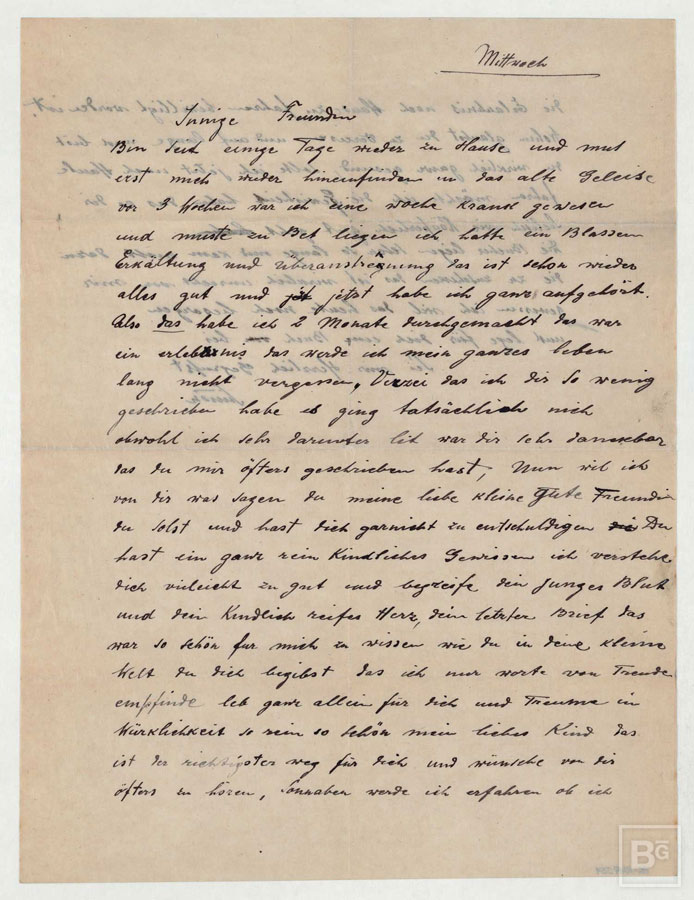 Mittwoch
Innige Freundin
Bin seit einige Tage wieder zu Hause und mus
erst mich wieder hineinfinden in das alte Geleise
vor 3 Wochen war ich eine woche krank gewesen
und muste zu Bet liegen ich hatte ein Blassen
Erkältung und überanstrengung das ist schon wieder
alles gut und jetzt habe ich ganz aufgehört.
Also das habe ich 2 Monate durchgemacht das war
ein erlebnis das werde ich mein ganzes leben
lang nicht vergessen, Verzei das ich dir so wenig
geschrieben habe es ging tatsächlich nich
obwohl ich sehr darunter lit war dir sehr dannkbar
das du mir öfters geschrieben hast, Nun wil ich
von dir was sagen du meine liebe kleine Gute Freundin
du solst und hast dich garnicht zu entschuldigen Du
hast ein ganz rein Kindliches Gewissen ich verstehe
dich vieleicht zu gut und begreife dein junges Blut
und dein Kindlich reifes Herz, dein letzter Brief das
war so schön fur mich zu wissen wie du in deine kleine
Welt du dich begibst das ich nur worte von Freude
empfinde leb ganz allein für dich und Treume in
Würklichkeit so rein so schön mein liebes Kind das
ist der richtigster weg für dich und wünsche von dir
öfters zu hören, Sonnaben werde ich erfahren ob ich
BG